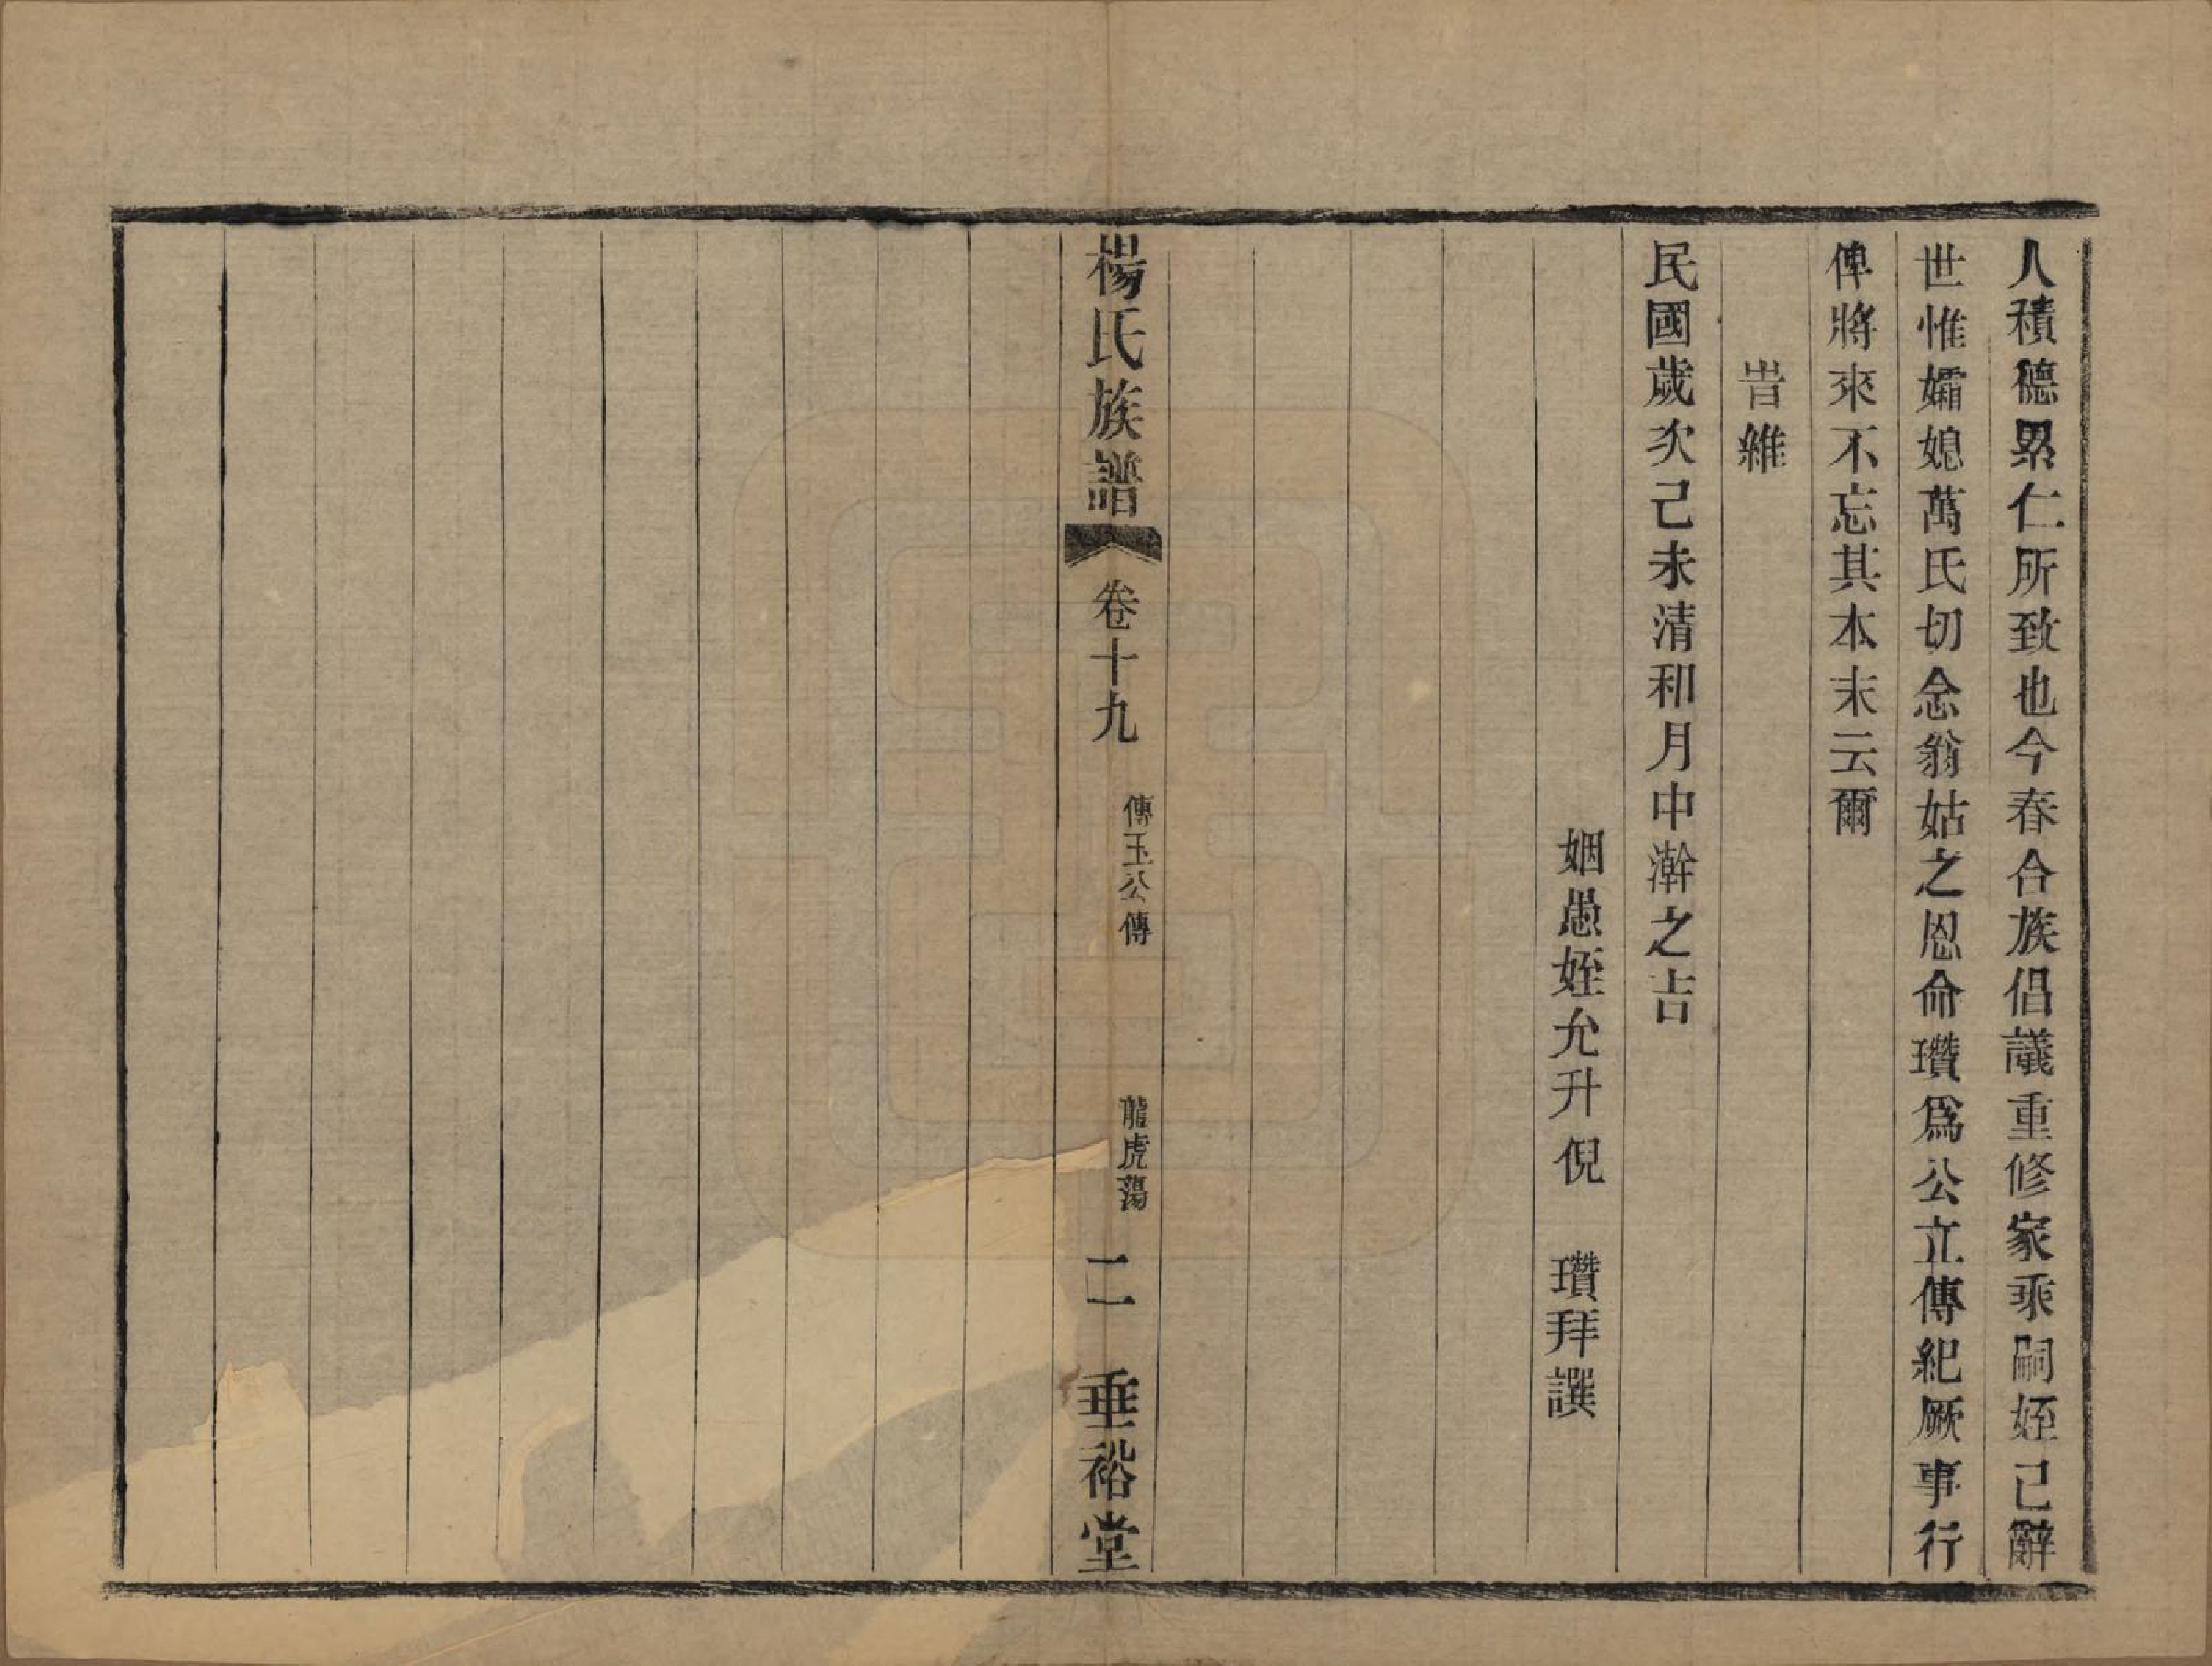 人積德累仁所致也今春合族倡議重修家乘嗣姪已辭
世惟孀媳萬氏切念翁姑之恩命瓚爲公立傳紀厥事行
俾將來不忘其本末云爾
旹維
民國歲次己未清和月中澣之吉
姻愚姪允升倪　瓚拜譔
楊氏族譜　卷十九　傳玉公傳　龍虎蕩　二　垂裕堂